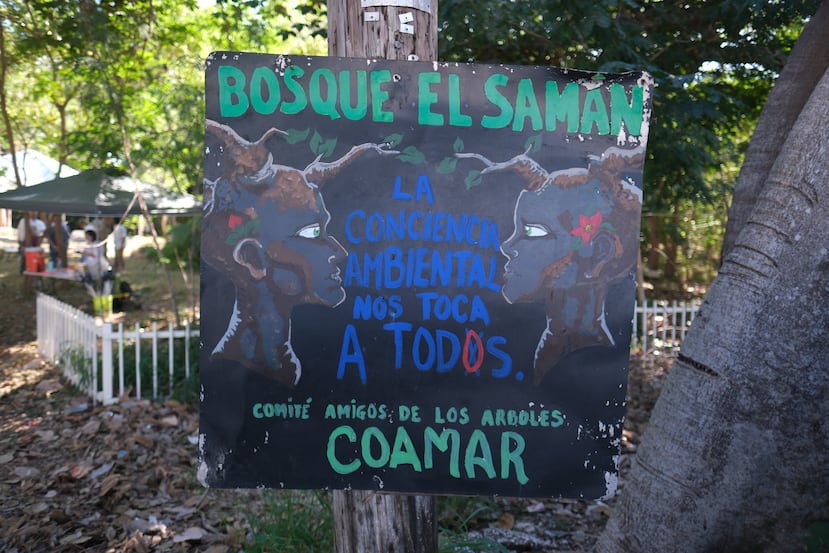 BOSQUE EL SAMÁN
LA
CONCIENCIA
AMBIENTAL
NOS TOCA
A TODOS.
COMITÉ AMIGOS DE LOS ARBOLES
COAMAR